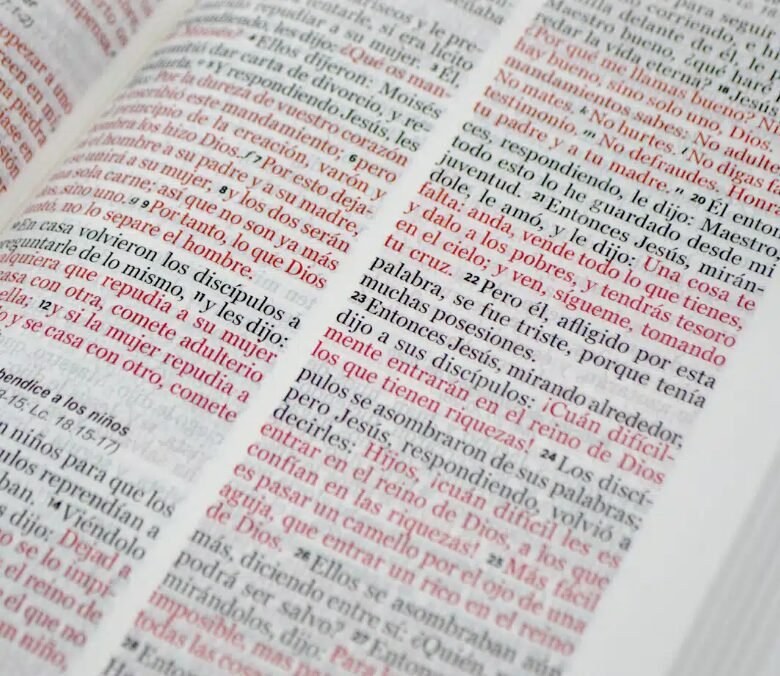 opezar a uno
reen en mí,
piedra
riseos y le pre-
repudiar a su mujer. ³ Él,
respondiendo, les dijo: ¿Qué os man-
Moisés? ⁴ Ellos dijeron: Moisés
permitió dar carta de divorcio, y re-
pudiarla. ⁵ Y respondiendo Jesús, les
Por la dureza de vuestro corazón
escribió este mandamiento; ⁶ pero
principio de la creación, varón y
hembra los hizo Dios. ⁷ Por esto deja-
el hombre a su padre y a su madre,
se unirá a su mujer, ⁸ y los dos serán
una sola carne; así que no son ya más
dos, sino uno. ⁹ Por tanto, lo que Dios
juntó, no lo separe el hombre.
En casa volvieron los discípulos a
preguntarle de lo mismo, ¹¹ y les dijo:
alquiera que repudia a su mujer
casa con otra, comete adulterio
ella; ¹² y si la mujer repudia a
o y se casa con otro, comete
bendice a los niños
Lc. 18.15-17)
n niños para que los
pulos reprendían a
ban. ¹⁴ Viéndolo
s dijo: Dejad a
no se lo impi-
el reino de
el que no
un niño,
para seguir
corriendo, e h
delante de él, le
Maestro bueno, ¿qué haré
redar la vida eterna? ¹⁸ Jesús
¿Por qué me llamas bueno? N
hay bueno, sino solo uno, Dios.
mandamientos sabes: No adulte
No mates. No hurtes. No digas fa
testimonio. No defraudes. Honr
tu padre y a tu madre. ²⁰ Él enton
ces, respondiendo, le dijo: Maestro,
todo esto lo he guardado desde mi
juventud. ²¹ Entonces Jesús, mirán-
dole, le amó, y le dijo: Una cosa te
falta: anda, vende todo lo que tienes,
y dalo a los pobres, y tendrás tesoro
en el cielo; y ven, sígueme, tomando
tu cruz. ²² Pero él, afligido por esta
palabra, se fue triste, porque tenía
muchas posesiones.
²³ Entonces Jesús, mirando alrededor,
dijo a sus discípulos: ¡Cuán difícil-
mente entrarán en el reino de Dios
los que tienen riquezas! ²⁴ Los discí-
pulos se asombraron de sus palabras;
pero Jesús, respondiendo, volvió a
decirles: Hijos, ¡cuán difícil les es
entrar en el reino de Dios, a los que
confían en las riquezas! ²⁵ Más fácil
es pasar un camello por el ojo de una
aguja, que entrar un rico en el reino
de Dios. ²⁶ Ellos se asombraban aún
más, diciendo entre sí: ¿Quién, p
podrá ser salvo? ²⁷ Entonc
mirándolos, dijo: Para l
imposible, mas pa
todas las cosa
²⁸